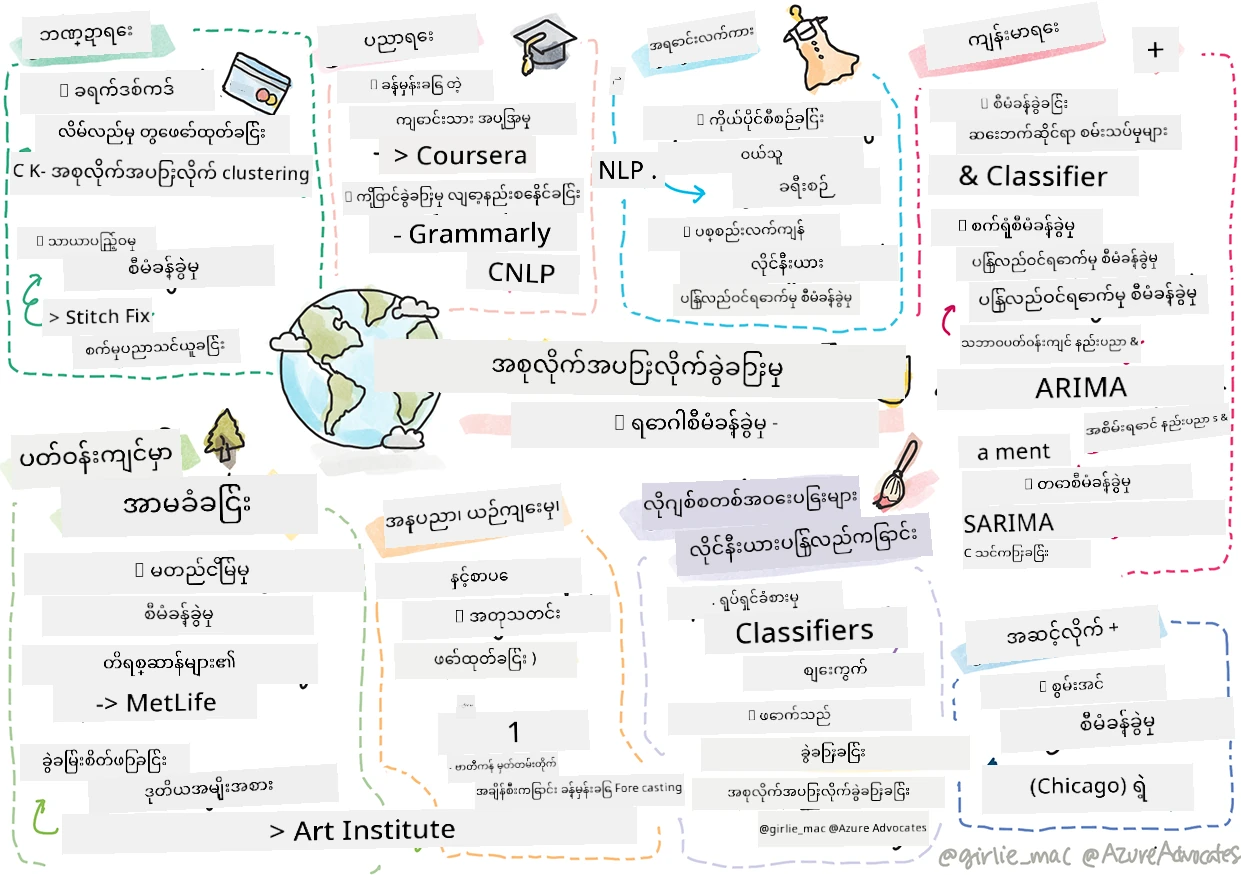 ဘဏ္ဍာရေး
ခရက်ဒစ်ကဒ်
လိမ်လည်မှု တွေဖော်ထုတ်ခြင်း
C K- အစုလိုက်အပြုံလိုက် clustering
သာယာပြည့်ဝမှု
စီမံခန့်ခွဲမှု
> Stitch Fix
စက်မှုပညာသင်ယူခြင်း
ပညာရေး
ခန့်မှန်းခြေ တဲ့
ကျောင်းသား အပြုအမူ
> Coursera
- Grammarly
CNLP
အရောင်းလက်ကား
ကိုယ်ပိုင်စီစဉ်ခြင်း
ဝယ်သူ
NLP .
ခရီးစဉ်
ပစ္စည်းလက်ကျန်
လိုင်နီးယား
ပြန်လည်ဝင်ရောက်မှု စီမံခန့်ခွဲမှု
ကျန်းမာရေး
+
စီမံခန့်ခွဲခြင်း
ဆေးဘက်ဆိုင်ရာ စမ်းသပ်မှုများ
& Classifier
စက်ရုံစီမံခန့်ခွဲမှု
ပြန်လည်ဝင်ရောက်မှု စီမံခန့်ခွဲမှု
ပြန်လည်ဝင်ရောက်မှု စီမံခန့်ခွဲမှု
သဘာဝပတ်ဝန်းကျင် နည်းပညာ &
ARIMA
အစိမ်းရောင် နည်းပညာ s &
a ment
တောစီမံခန့်ခွဲမှု
SARIMA
C သင်ကြားခြင်း
အစုလိုက်အပြုံလိုက်ခွဲခြားမှု
ရောဂါစီမံခန့်ခွဲမှု -
ပတ်ဝန်းကျင်မှာ
အာမခံခြင်း
မတည်ငြိမ်မှု
စီမံခန့်ခွဲမှု
တိရစ္ဆာန်များ၏
-> MetLife
ခွဲခြမ်းစိတ်ဖြာခြင်း
ဒုတိယအမျိုးအစား
> Art Institute
အနုပညာ၊ ယဉ်ကျေးမှု၊
နှင့်စာပေ
အတုသတင်း
ဖော်ထုတ်ခြင်း )
1
ဗာတီကန် မှတ်တမ်းတိုက်
အချိန်စီးကြောင်း ခန့်မှန်းခြေ Fore casting
လိုဂျစ်စတစ်အဝေးပြေးများ
လိုင်နီးယားပြန်လည်ကြောင်း
. ရုပ်ရှင်ခံစားမှု
Classifiers
ဈေးကွက်
ဖောက်သည်
ခွဲခြားခြင်း
အစုလိုက်အပြုံလိုက်ခွဲခြားခြင်း
@girlie_mac @Azure Advocates
အဆင့်လိုက် +
စွမ်းအင်
စီမံခန့်ခွဲမှု
(Chicago) ရဲ့
@girlie_mac @AzureAdvocates